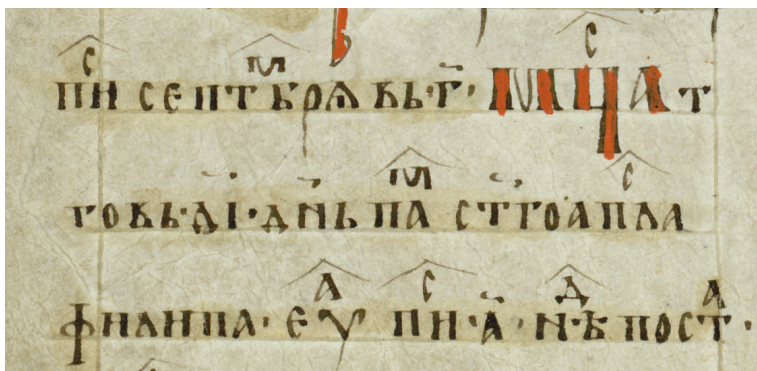 пиⷭ҇ септеⷨ҇брꙗ въ·г҃· мцⷭ҇а т
гоⷤвь·д҃і·дн҃ь паⷨ҇ ст҃го апⷭ҇ла
филипа· еѵⷢ҇ пиⷭ҇·а҃·нⷣ҇ѣ постⷣ·